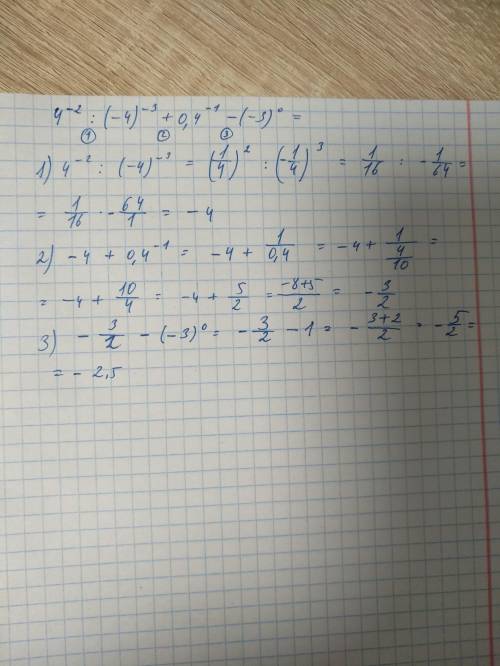 4⁻² : (-4)⁻³ + 0,4⁻¹ - (-3)⁰ =
① ② ③
1) 4⁻² : (-4)⁻³ = (1/4)² : (-1/4)³ = 1/16 : -1/64 =
= 1/16 · -64/1 = -4
2) -4 + 0,4⁻¹ = -4 + 1/0,4 = -4 + 1/(4/10) =
= -4 + 10/4 = -4 + 5/2 = (-8+5)/2 = -3/2
3) -3/2 - (-3)⁰ = -3/2 - 1 = -(3+2)/2 = -5/2 =
= -2,5